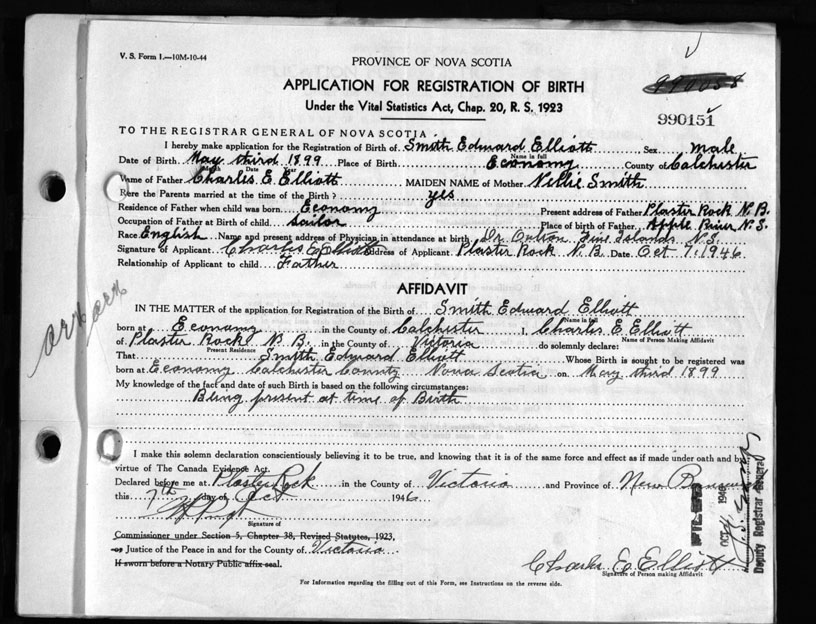 V. S. Form 1.—10M-10-44
PROVINCE OF NOVA SCOTIA
APPLICATION FOR REGISTRATION OF BIRTH
Under the Vital Statistics Act, Chap. 20, R. S. 1923
990151
TO THE REGISTRAR GENERAL OF NOVA SCOTIA
I hereby make application for the Registration of Birth of Smith Edward Elliott Sex male
Name in full
Date of Birth May third 1899 Place of Birth Economy County of Colchester
Month Date Year
Name of Father Charles E. Elliott MAIDEN NAME of Mother Nellie Smith
Were the Parents married at the time of the Birth? yes
Residence of Father when child was born Economy Present address of Father Plaster Rock N. B.
Occupation of Father at Birth of child Sailor Place of birth of Father Apple River N. S.
Race English Name and present address of Physician in attendance at birth Dr. Five Islands N. S.
Signature of Applicant Charles E Elliott Address of Applicant Plaster Rock N. B. Date Oct 7. 1946
Relationship of Applicant to child Father
AFFIDAVIT
IN THE MATTER of the application for Registration of the Birth of Smith Edward Elliott
Name in full
born at Economy in the County of Colchester I, Charles E. Elliott
Name of Person Making Affidavit
of Plaster Rock N. B. in the County of Victoria do solemnly declare:
Present Residence
That Smith Edward Elliott Whose Birth is sought to be registered was
born at Economy Colchester County Nova Scotia on May third 1899
My knowledge of the fact and date of such Birth is based on the following circumstances:
Being present at time of Birth
I make this solemn declaration conscientiously believing it to be true, and knowing that it is of the same force and effect as if made under oath and by
virtue of The Canada Evidence Act.
Declared before me at Plaster Rock in the County of Victoria and Province of New Brunswick
this 7th day of Oct 1946
Signature of
Commissioner under Section 5, Chapter 38, Revised Statutes, 1923,
or Justice of the Peace in and for the County of Victoria
If sworn before a Notary Public affix seal.
Charles E Elliott
Signature of Person making Affidavit
For Information regarding the filling out of this Form, see Instructions on the reverse side.
FILED
OCT 1946
Deputy Registrar General